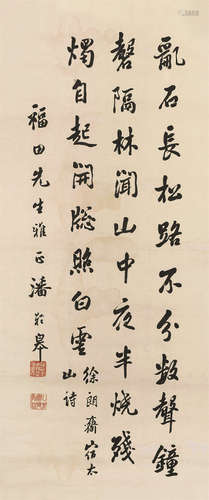 亂石長松路不分数聲鐘
磬隔林聞山中夜半燒殘
燭自起開窗照白雲
徐朗齋宿太
山诗
福田先生雅正潘齡皋